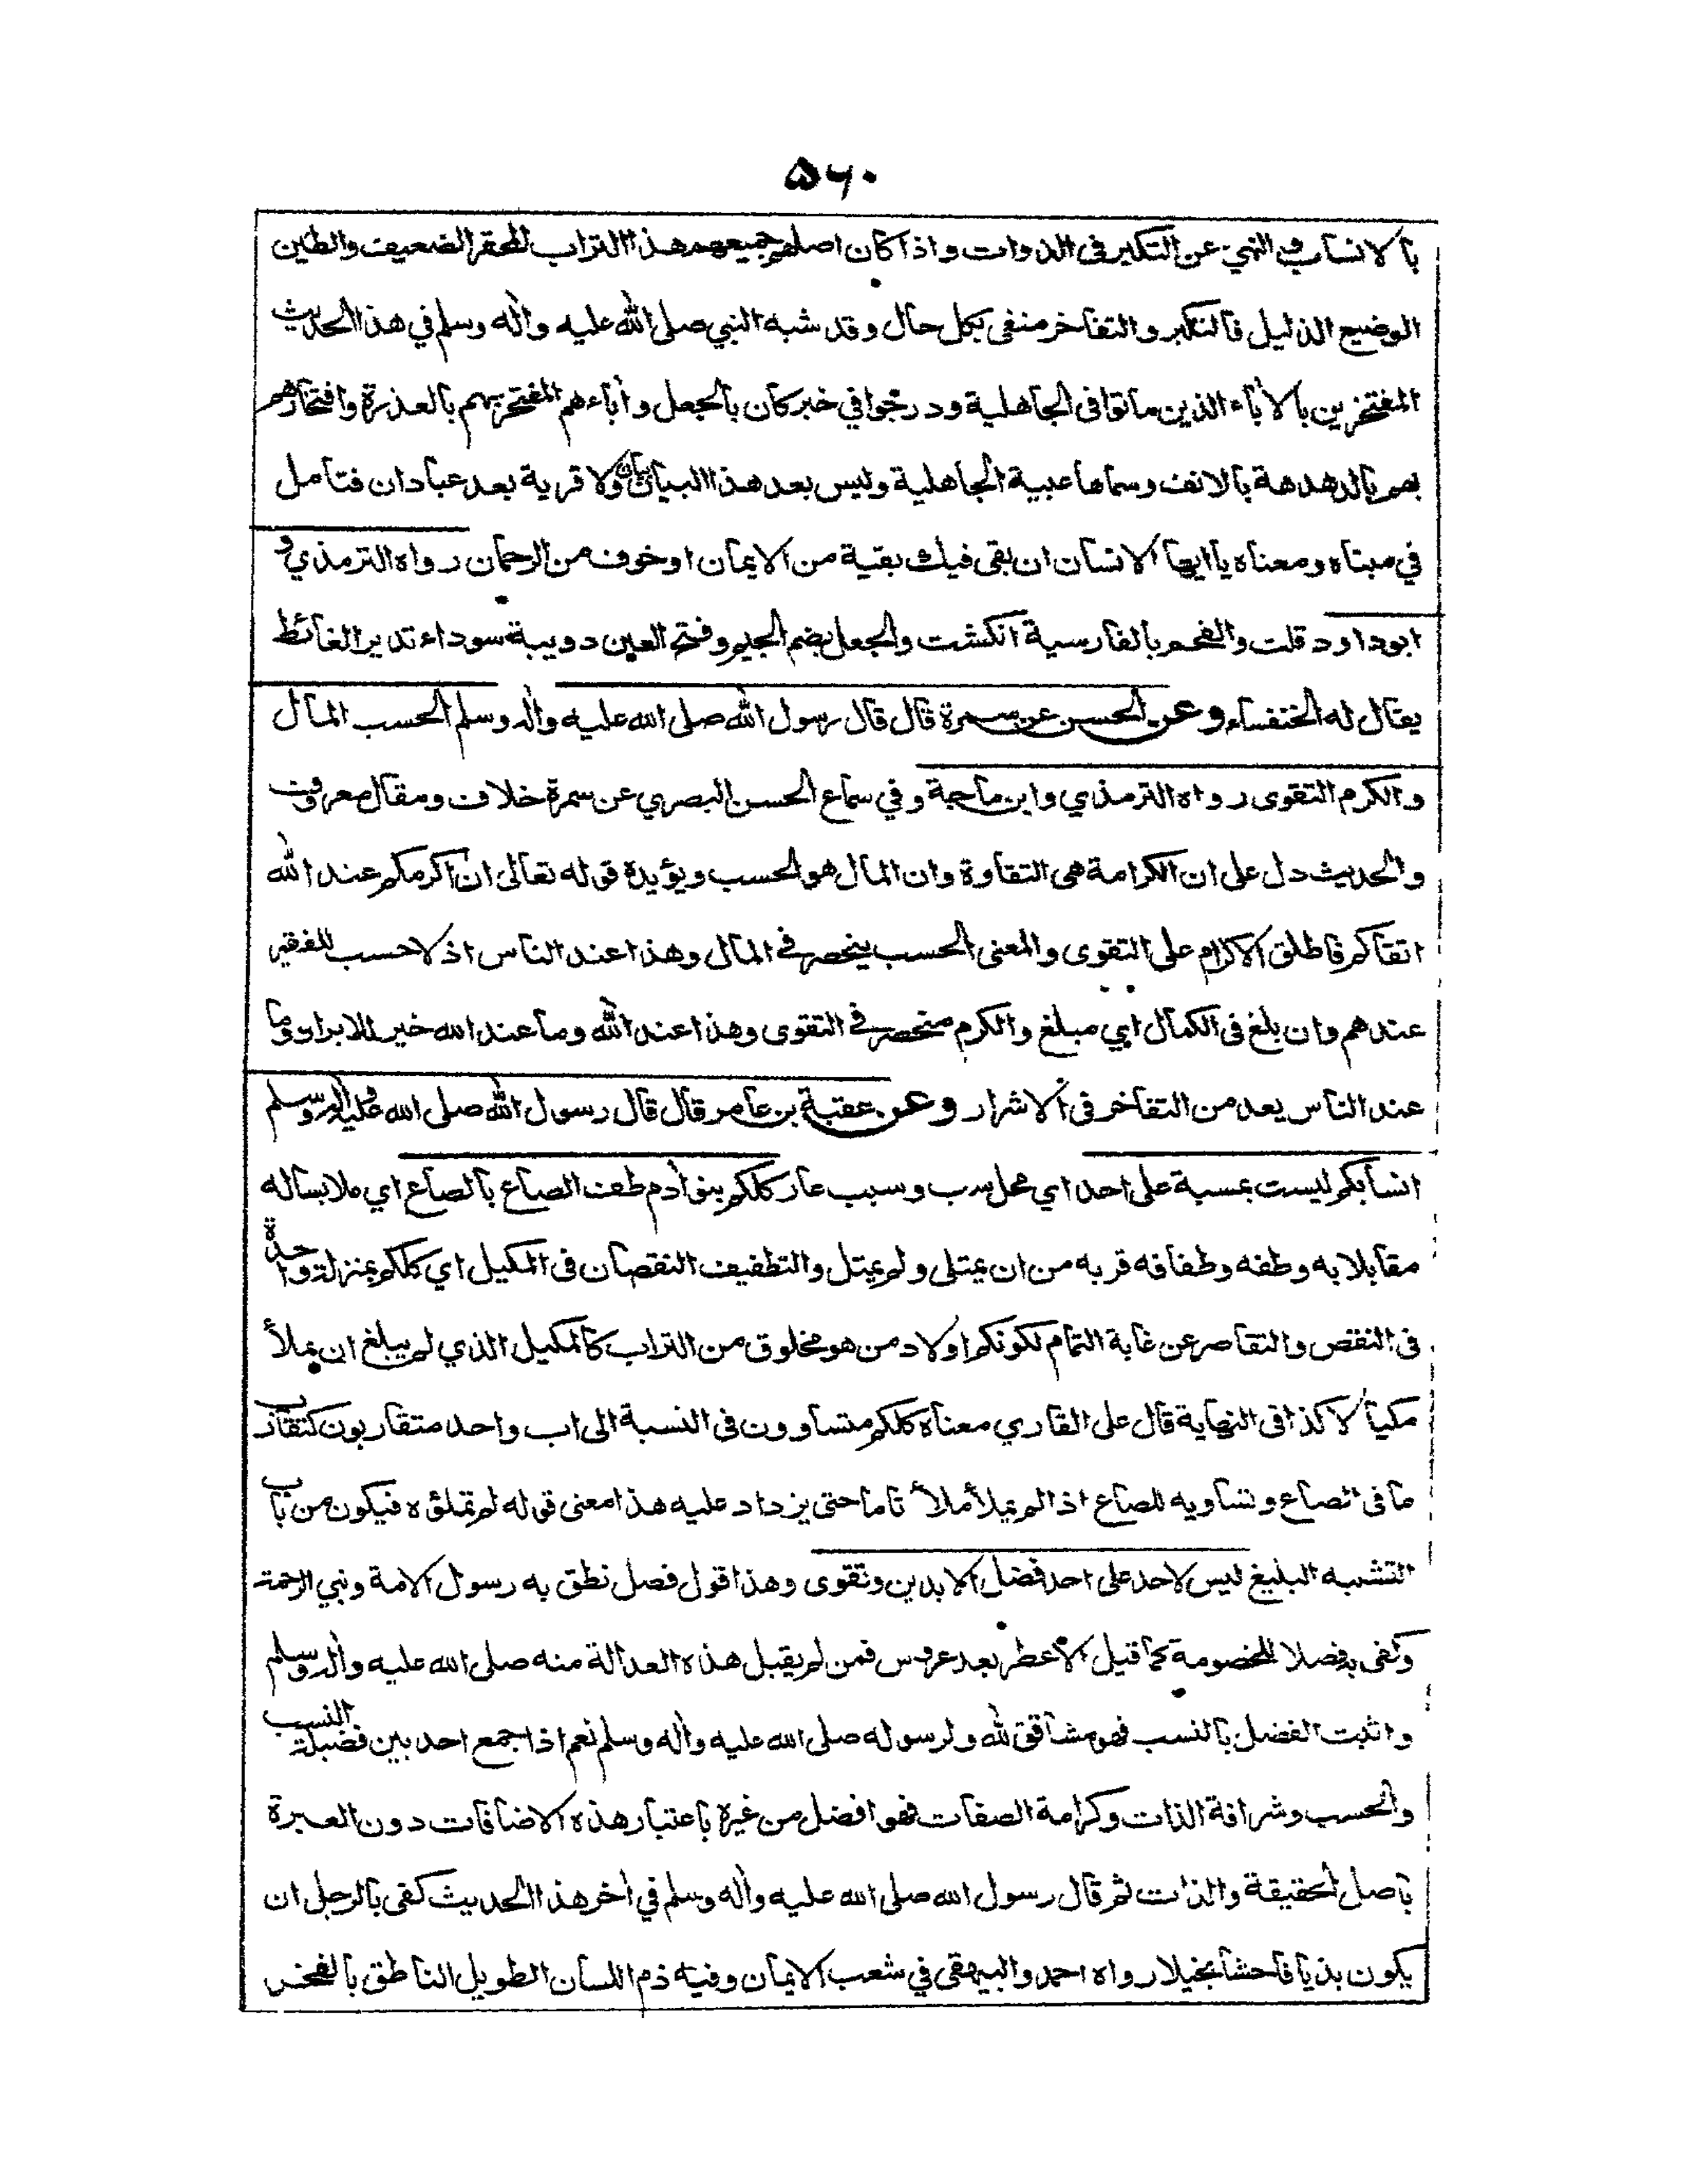 ۵۶۰
بالانساب في النهي عن التكبر في الذوات واذا كان اصلهم جميعهم هذا التراب المحقر الضعيف والطين
الوضيع الذليل فالتكبر والتفاخر منفى بكل حال وقد شبه النبي صلى الله عليه واله وسلم في هذا الحديث
المفتخرين بالاباء الذين ماتوا في الجاهلية ودرجوا في خبر كان بالجعل وأباءهم المفتخر بهم بالعذرة وافتخارهم
بهم بالدهدهة بالانف وسماها عبية الجاهلية وليس بعد هذا البيان بيان ولا قرية بعد عبادان فتأمل
في مبناه ومعناه يا ايها الانسان ان بقى فيك بقية من الايمان او خوف من الرحمان رواه الترمذي و
ابو داود قلت والفحم بالفارسية انكشت والجعل بضم الجيم وفتح العين دويبة سوداء تدير الغائط
يقال له الخنفساء وعن الحسن عن سمرة قال قال رسول الله صلى الله عليه واله وسلم الحسب المال
والكرم التقوى رواه الترمذي وابن ماجة وفي سماع الحسن البصري عن سمرة خلاف ومقال معروف
والحديث دل على ان الكرامة هى التقاوة وان المال هو الحسب ويؤيده قوله تعالى ان اكرمكم عند الله
اتقاكم فاطلق الاكرام على التقوى والمعنى الحسب ينحصر في المال وهذا عند الناس اذ لا حسب للفقير
عندهم وان بلغ في الكمال اي مبلغ والكرم منحصر في التقوى وهذا عند الله وما عند الله خير للابرار وما
عند الناس يعد من التفاخر في الاشرار وعن عقبة بن عامر قال قال رسول الله صلى الله عليه واله وسلم
انسابكم ليست بمسبة على احد اي محل سب وسبب عار كلكم بنو أدم طف الصاع بالصاع اي ملابساله
مقابلا به وطفه وطفافه قربه من ان يمتلى ولم يمتل والتطفيف النقصان في المكيل اي كلكم بمنزلة واحدة
في النقص والتقاصر عن غاية التمام لكونكم اولاد من هو مخلوق من التراب كالمكيل الذي لم يبلغ ان يملأ
مكيالا كذا في النهاية قال على القاري معناه كلكم متساوون في النسبة الى اب واحد متقاربون كتقارب
ما في الصاع وتساويه للصاع اذا لم يملأ ملأ تاما حتى يزداد عليه هذا معنى قوله لم تملؤه فيكون من باب
التشبيه البليغ ليس لاحد على احد فضل الا بدين وتقوى وهذا قول فصل نطق به رسول الامة ونبي الرحمة
وكفى به فصلا للخصومة كما قيل لا عطر بعد عروس فمن لم يقبل هذه العدالة منه صلى الله عليه واله وسلم
واثبت الفضل بالنسب فهو مشاقق لله ولرسوله صلى الله عليه وأله وسلم نعم اذا اجمع احد بين فضيلة النسب
والحسب وشرافة الذات وكرامة الصفات فهو افضل من غيره باعتبار هذه الاضافات دون العبرة
باصل الحقيقة والذات ثم قال رسول الله صلى الله عليه وأله وسلم في أخر هذا الحديث كفى بالرجل ان
يكون بذيا فاحشا بخيلا رواه احمد والبيهقي في شعب الايمان وفيه ذم اللسان الطويل الناطق بالفخر